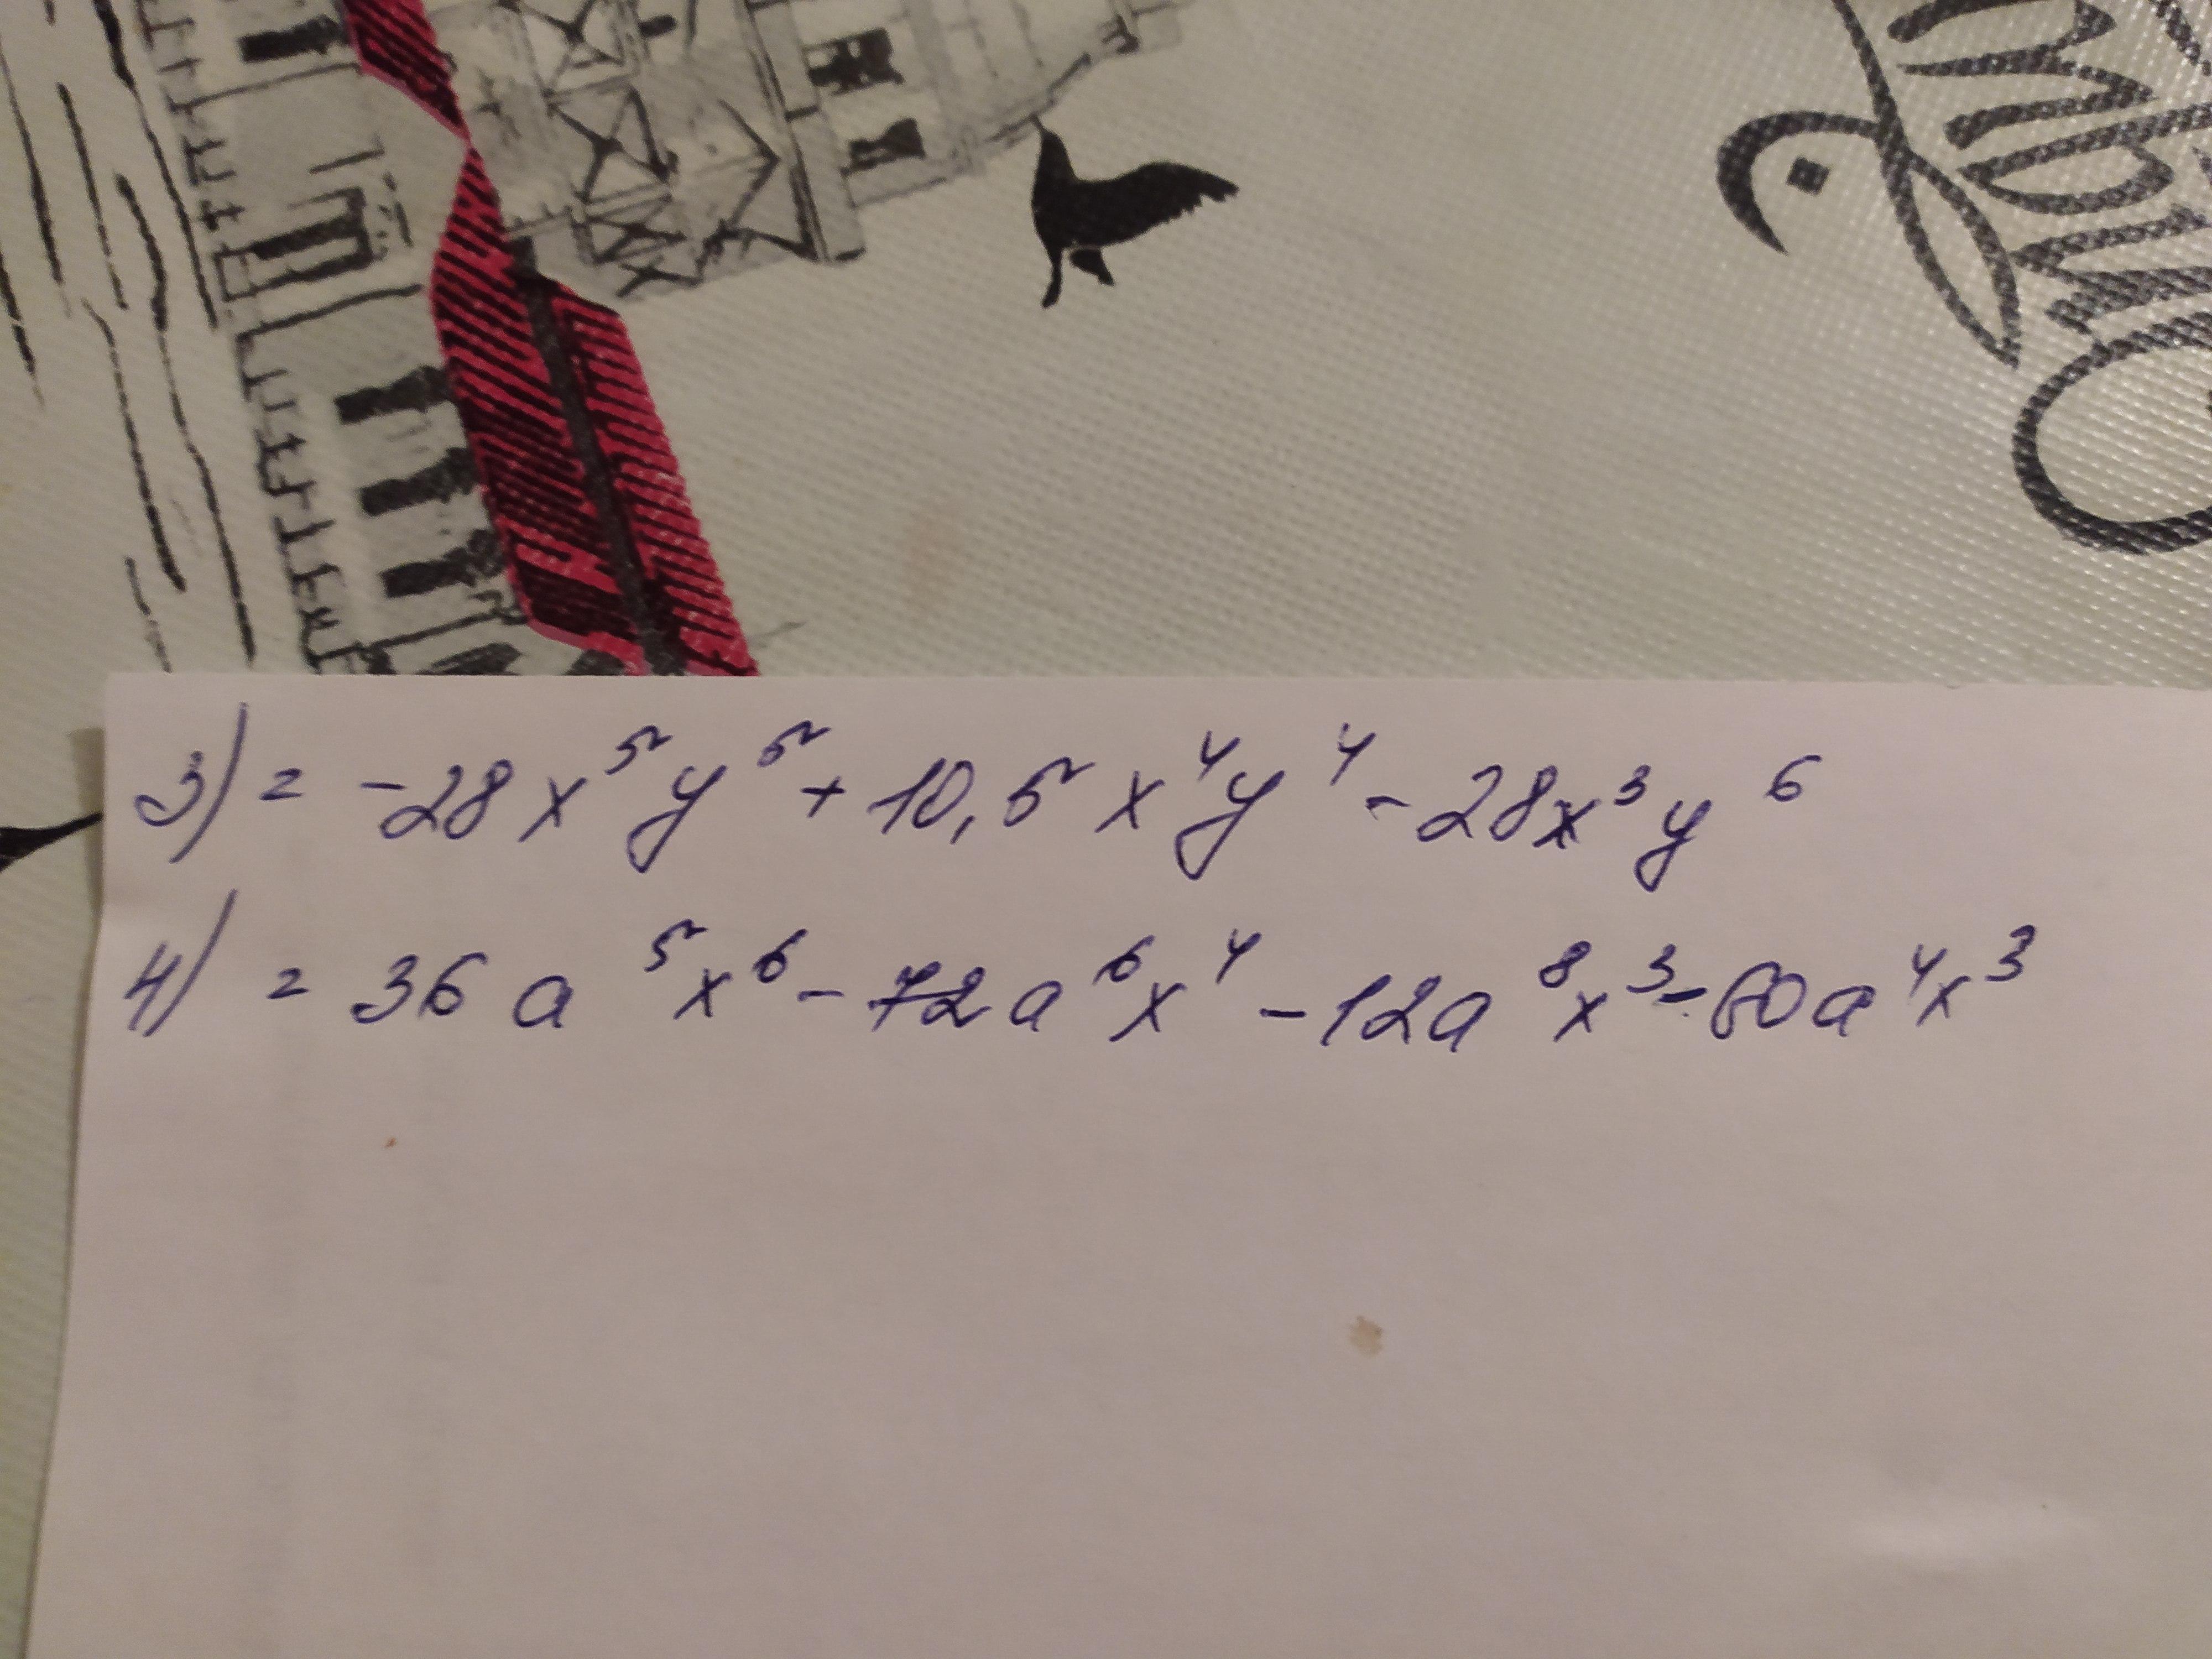 3) = -28x⁵y⁵ + 10,5x⁴y⁴ - 28x³y⁶
4) = 36a⁵x⁶ - 72a⁶x⁴ - 12a⁸x³ - 60a⁴x³